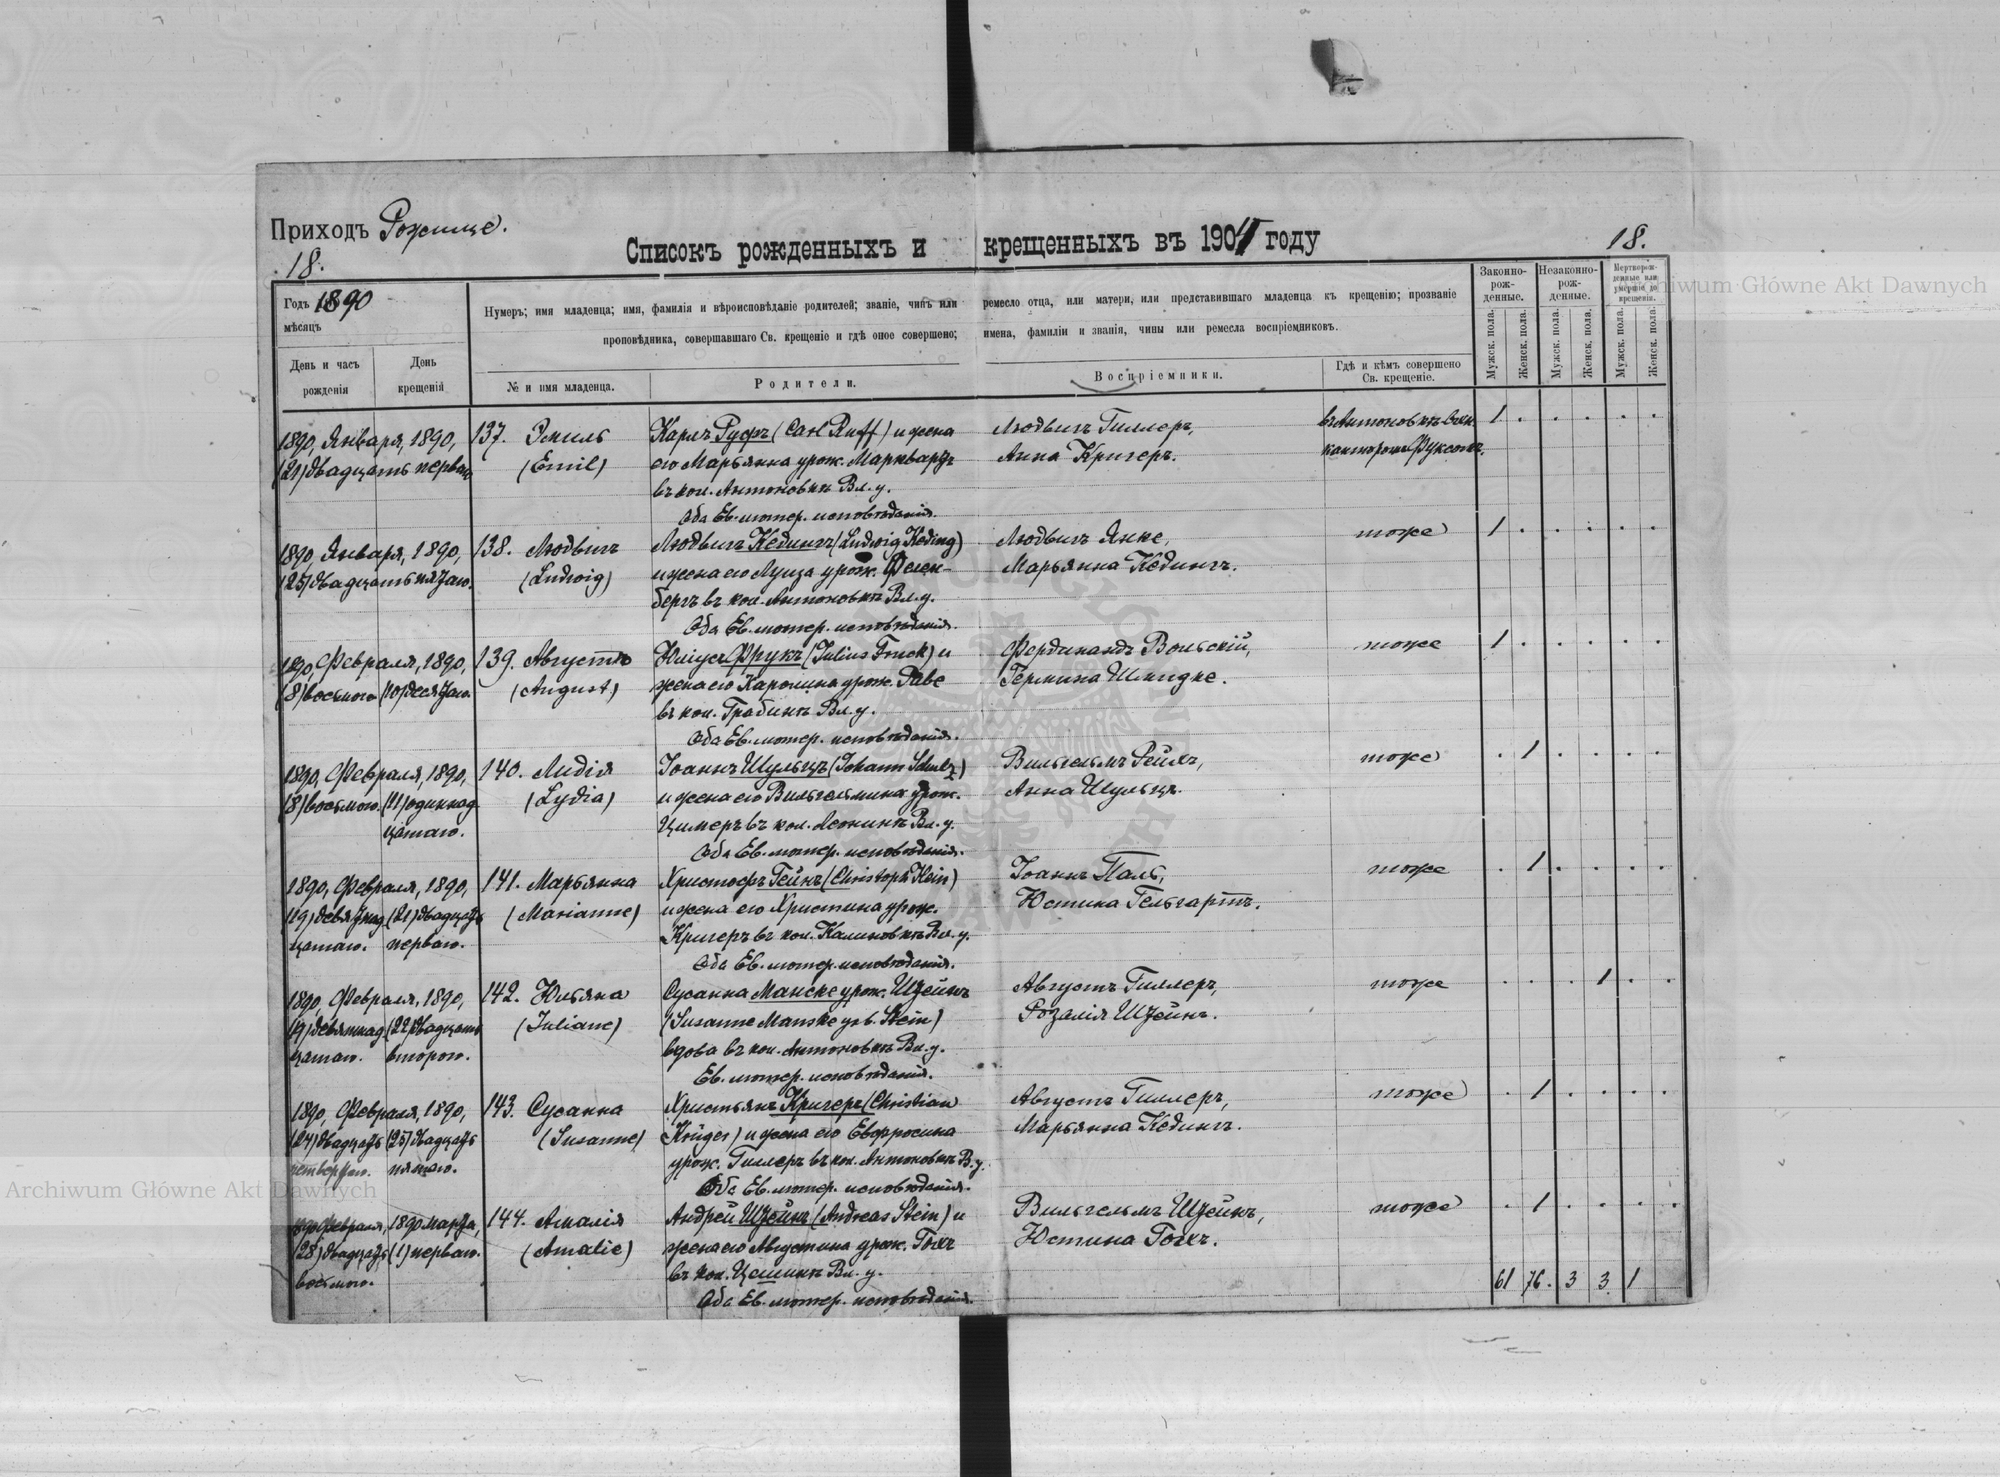 Приходъ Рожище.
Списокъ рожденныхъ и крещенныхъ въ 1904 году
18.
18.
Годъ 1890
мѣсяцъ
Нумеръ; имя младенца; имя, фамилія и вѣроисповѣданіе родителей; званіе, чинъ или ремесло отца, или матери, или представившаго младенца къ крещенію; прозваніе
проповѣдника, совершавшаго Св. крещеніе и гдѣ оное совершено; имена, фамиліи и званія, чины или ремесла воспріемниковъ.
Законно-рож-денные.
Незаконно-рож-денные.
Мертворож-денные или умершіе до крещенія.
Мужск. пола.
Женск. пола.
Мужск. пола.
Женск. пола.
Мужск. пола.
Женск. пола.
День и часъ рожденія
День крещенія
№ и имя младенца.
Родители.
Воспріемники.
Гдѣ и кѣмъ совершено Св. крещеніе.
1890, Января, 1890, 137. Эмиль Карлъ Руфъ (Carl Ruff) и жена Людвигъ Гиллеръ, въ Антоновкѣ 1
(21) двадцать перваго (Emil) его Марьянна урож. Марквардъ Анна Кригеръ. канторомъ Фуксомъ.
въ кол. Антоновкѣ Вл. у.
Оба Ев.-лютер. исповѣданія.
1890, Января, 1890, 138. Людвигъ Людвигъ Кедингъ (Ludwig Keding) Людвигъ Янке, тоже 1
(25) двадцать пятаго. (Ludwig) и жена его Луиза урож. Фелен- Марьянна Кедингъ.
бергъ въ кол. Антоновкѣ Вл. у.
Оба Ев.-лютер. исповѣданія.
1890, Февраля, 1890, 139. Августъ Юліусъ Фрукъ (Julius Fruck) и Фердинандъ Вольскій, тоже 1
(8) восьмого (10) десятаго. (August) жена его Каролина урож. Раве Гермина Шмидке.
въ кол. Грабинѣ Вл. у.
Оба Ев.-лютер. исповѣданія.
1890, Февраля, 1890, 140. Лидія Іоаннъ Шульцъ (Johann Schulz) Вильгельмъ Рейхъ, тоже 1
(8) восьмого. (11) одиннад- (Lydia) и жена его Вильгельмина урож. Анна Шульцъ.
цатаго. Цимеръ въ кол. Леонинѣ Вл. у.
Оба Ев.-лютер. исповѣданія.
1890, Февраля, 1890, 141. Марьянна Христофъ Гейнъ (Christoph Hein) Іоаннъ Паль, тоже 1
(19) девятнад (21) двадцать (Marianne) и жена его Христина урож. Юстина Гельгартъ.
цатаго. перваго. Кригеръ въ кол. Калиновкѣ Вл. у.
Оба Ев.-лютер. исповѣданія.
1890, Февраля, 1890, 142. Юльяна Сусанна Манске урож. Штейнъ Августъ Гиллеръ, тоже 1
(19) девятнад. (22) двадцать (Juliane) (Susanne Manske geb. Stein) Розалія Штейнъ.
цатаго. второго. вдова въ кол. Антоновкѣ Вл. у.
Ев.-лютер. исповѣданія.
1890, Февраля, 1890, 143. Сусанна Христьянъ Кригеръ (Christian Августъ Гиллеръ, тоже 1
(24) двадцать (25) двадцать (Susanne) Krüger) и жена его Евфросина Марьянна Кедингъ.
четвертаго. пятаго. урож. Гиллеръ въ кол. Антоновкѣ В. у.
Оба Ев.-лютер. исповѣданія.
1890 Февраля, 1890 Марта, 144. Амалія Андрей Штейнъ (Andreas Stein) и Вильгельмъ Штейнъ, тоже 1
(28) двадцать (1) перваго. (Amalie) жена его Августина урож. Гохъ Юстина Гохъ.
восьмого. въ кол. Цешинѣ Вл. у.
Оба Ев.-лютер. исповѣданія.
61 76. 3 3 1
Archiwum Główne Akt Dawnych
Archiwum Główne Akt Dawnych